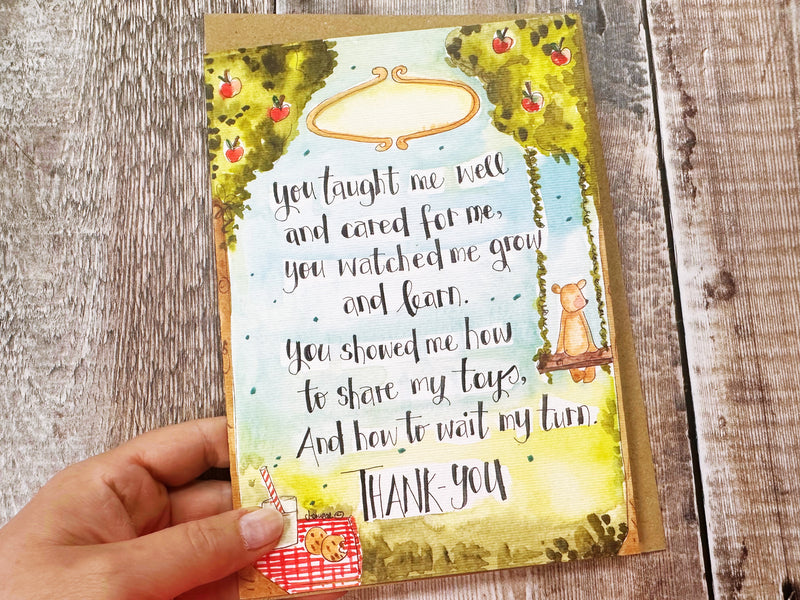 you taught me well
and cared for me,
you watched me grow
and learn.
You showed me how
to share my toys,
And how to wait my turn.
THANK-YOU